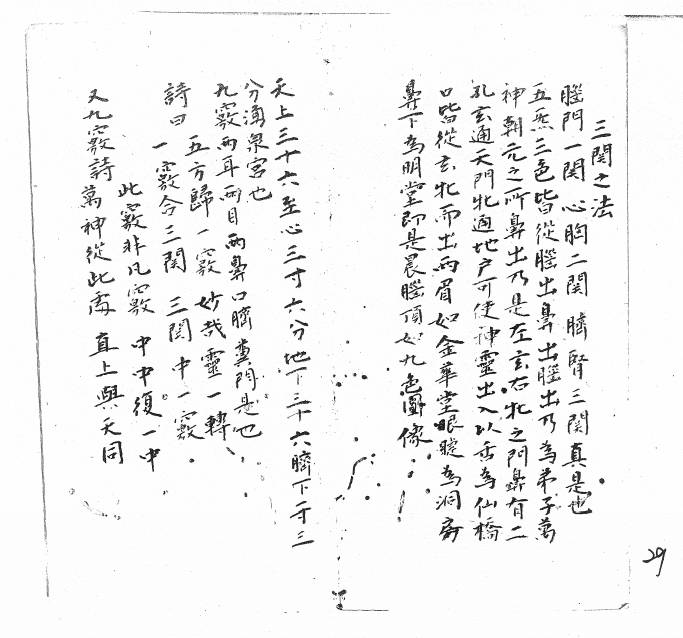 三関之法
腦門一関心胸二関臍腎三関真是也
五炁三色皆從腦出鼻出腦出乃為弟子萬
神朝元之所鼻出乃是左玄右牝之門鼻有二
孔玄通天門牝通地户可使神靈出入以舌為仙橋
口皆從玄牝而出兩眉如金華堂眼睫為洞房
鼻下為明堂即是晨腦頂如九色圓像
天上三十六至心三寸六分地下三十六臍下一寸三
分湧泉宮也
九竅兩耳兩目兩鼻口臍糞門是也
五方歸一竅 妙哉靈一轉
詩曰 一竅合三関 三関中一竅
此竅非凡竅 中中復一中
又九竅詩 萬神從此處 直上與天同
29